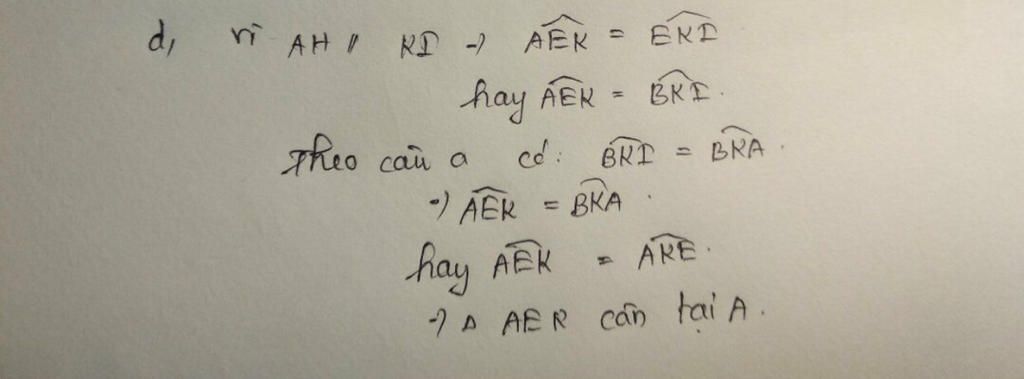 d, vì AH // KI → AÊK = EK̂I
hay AÊK = BK̂I.
Theo câu a có: BK̂I = BK̂A.
→ AÊK = BK̂A.
hay AÊK = AK̂E.
→ Δ AEK cân tại A.